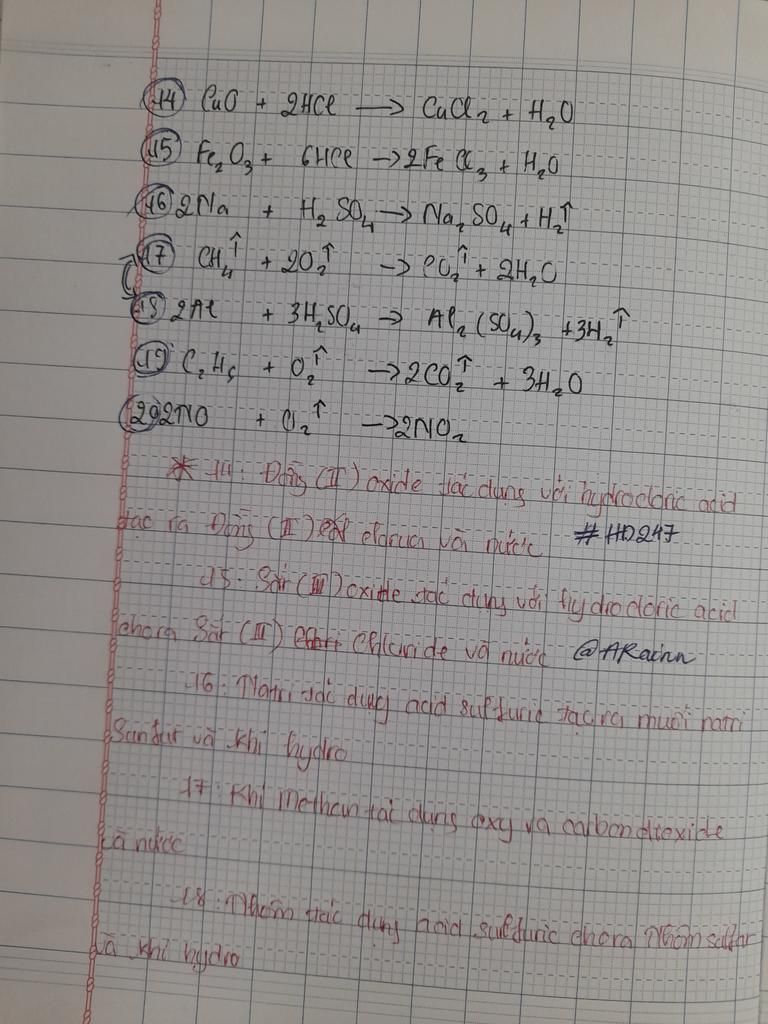 14 CuO + 2HCl → CuCl₂ + H₂O
15 Fe₂O₃ + 6HCl → 2FeCl₃ + H₂O
16 2Na + H₂SO₄ → Na₂SO₄ + H₂↑
17 CH₄↑ + 2O₂↑ → CO₂↑ + 2H₂O
18 2Al + 3H₂SO₄ → Al₂(SO₄)₃ + 3H₂↑
19 C₂H₅ + O₂↑ → 2CO₂↑ + 3H₂O
20 2NO + O₂↑ → 2NO₂
* 14: Đồng (II) oxide tác dụng với hydrocloric acid
tạc ra Đồng (II) clorua và nước #HD247
15. Sắt (III) oxide tác dụng với hydrocloric acid
chora Sắt (III) chloride và nước @ARainn
16: Natri tác dụng acid sulfuric tạc ra muối natri
Sunfur và khí hydro
17: Khí methan tác dụng oxy va carbondioxide
và nước
18: Nhôm tác dụng acid sulfuric chora Nhôm sulfur
và khí hydro